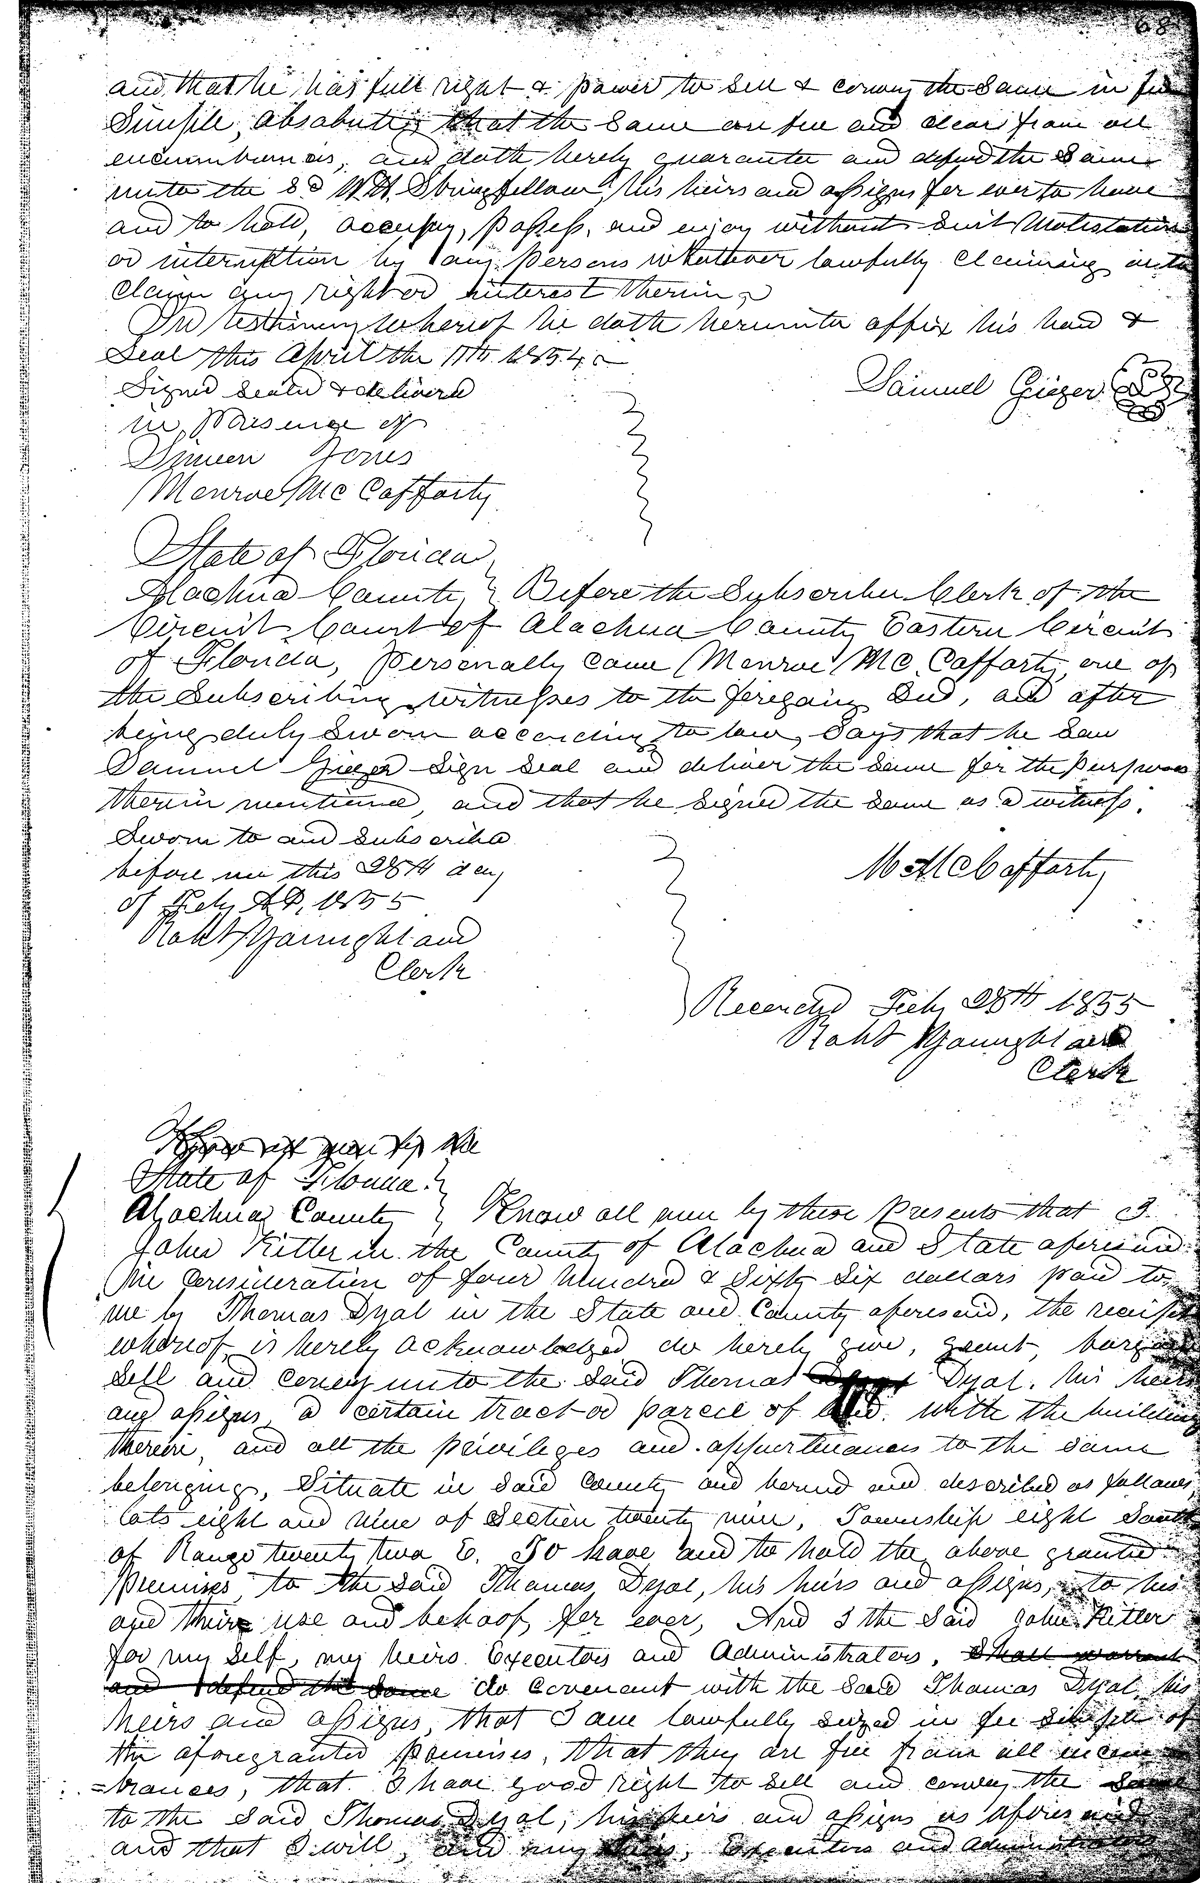 68
and that he has full right & power to sell & convey the Same in fee
Simple, absolutely that the Same are free and clear from all
encumbrances, and doth hereby guarantee and defend the Same
unto the sd W.H. Stringfellow, his heirs and assigns for ever to have
and to hold, occupy, possess, and enjoy without Suit Molestation
or interruption by any persons whatever lawfully claiming or to
claim any right or interest therein,
In testimony whereof he doth hereunto affix his hand &
Seal this April the 11th 1854
Samuel Gieger
Signed Sealed & delivered
in presence of
Simeon Jones
Monroe McCafferty
State of Florida
Alachua County } Before the Subscriber Clerk of the
Circuit Court of Alachua County Eastern Circuit
of Florida, personally came Monroe McCafferty, one of
the Subscribing witnesses to the foregoing Deed, and after
being duly Sworn according to law, Says that he Saw
Samuel Gieger Sign Seal and deliver the Same for the purposes
therein mentioned, and that he Signed the Same as a witness.
Sworn to and subscribed
before me this 28th day
of Feby AD, 1855
M McCafferty
Robt Younghland
Clerk
Recorded Feby 28th 1855
Robt Younghland
Clerk
Know all men by the
State of Florida }
Alachua County } Know all men by these Presents that I
John Kitler in the County of Alachua and State aforesaid
in Consideration of four hundred & Sixty Six dollars paid to
me by Thomas Dyal in the State and County aforesaid, the receipt
whereof, is hereby acknowledged do hereby give, grant, bargain
Sell and convey unto the Said Thomas Dyal, his heirs
and assigns, a certain tract or parcel of land. with the buildings
therein, and all the privileges and appurtenances to the same
belonging, Situate in Said County and bound and described as follows,
Lots eight and nine of Section twenty nine, Township eight South
of Range twenty two E. To have and to hold the above granted
premises, to the Said Thomas Dyal, his heirs and assigns, to his
and their use and behoof, for ever, And I the Said John Kitler
for my Self, my heirs Executors and Administrators, Shall warrant
and defend the Same do covenant with the Said Thomas Dyal his
heirs and assigns, that I am lawfully seized in fee simple of
the aforegranted premises, that they are free from all incum
=brances, that I have good right to sell and convey the Same
to the Said Thomas Dyal, his heirs and assigns as aforesaid
and that I will, and my heirs, Executors and administrators